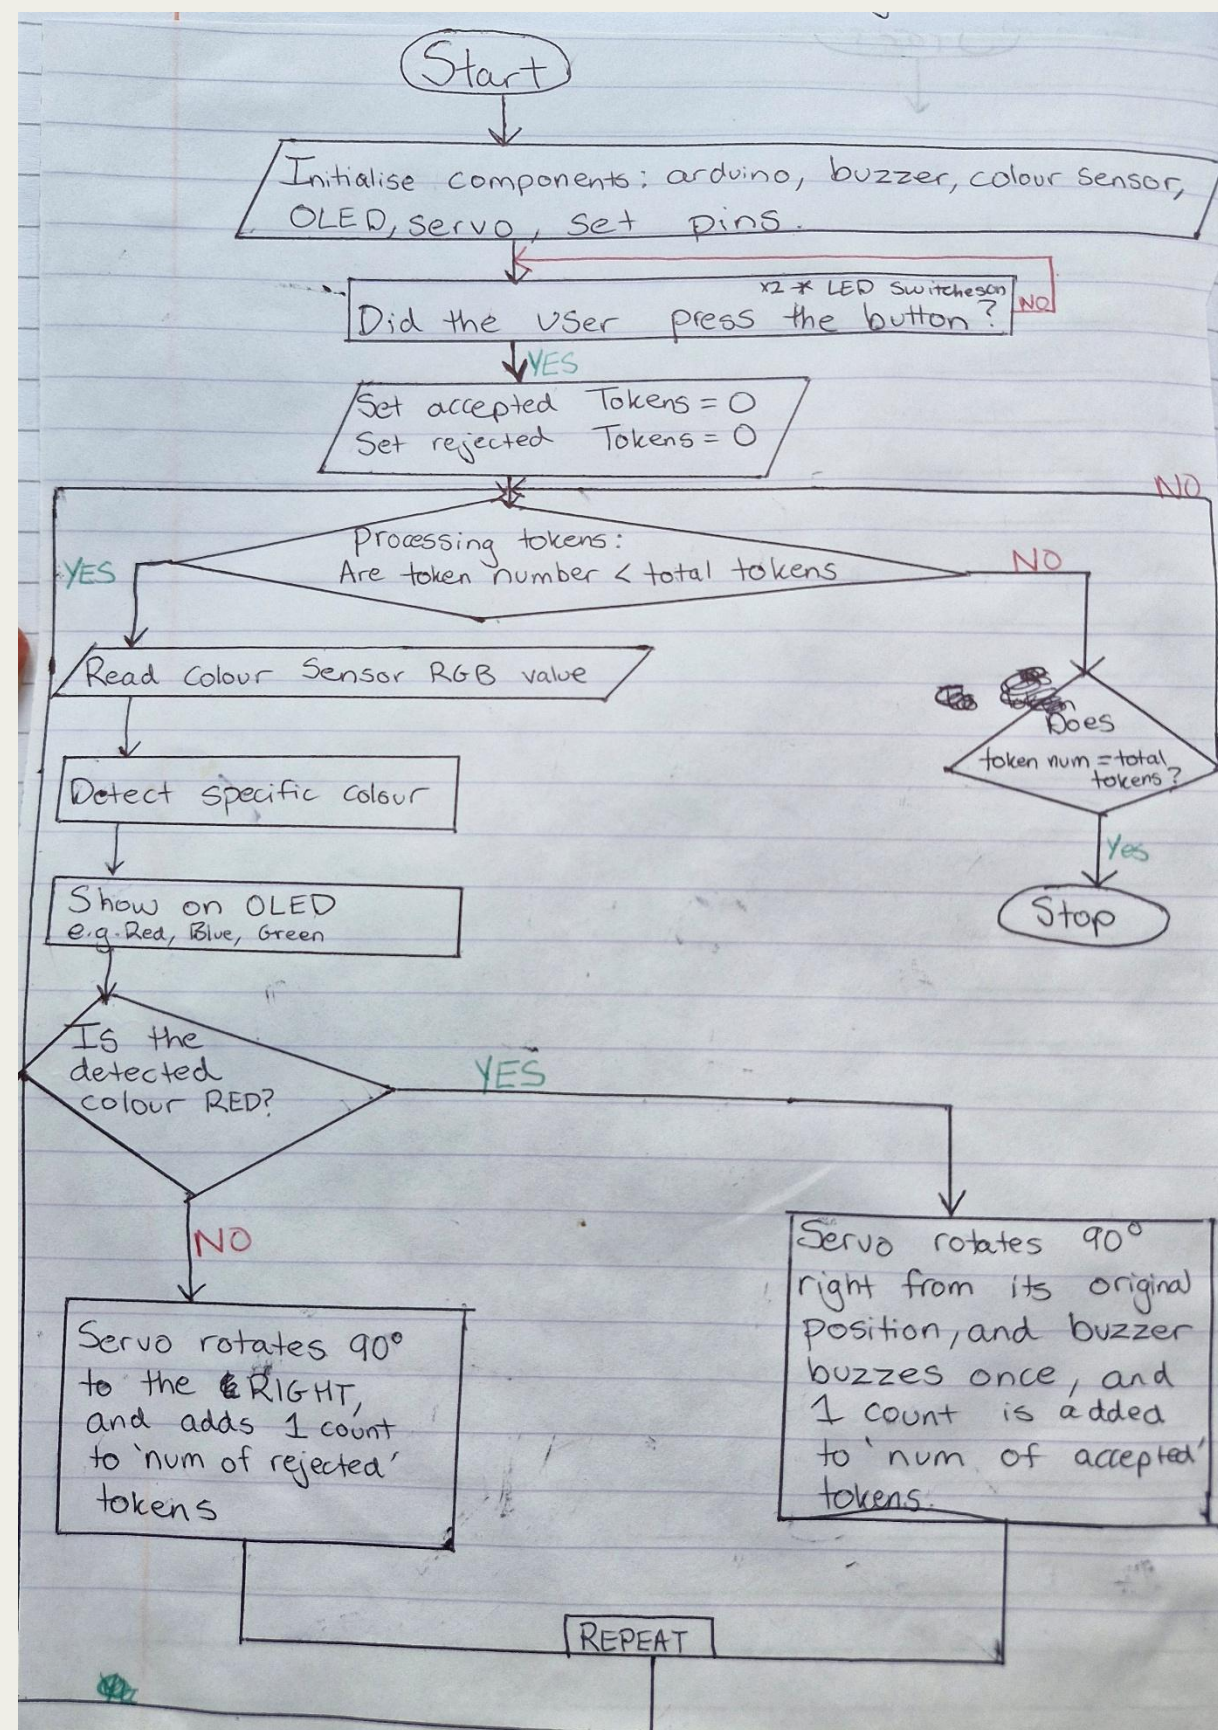 Start
Initialise components: arduino, buzzer, colour sensor,
OLED, servo, set pins.
x2 * LED switches on
Did the user press the button?
NO
YES
Set accepted Tokens = 0
Set rejected Tokens = 0
NO
Processing tokens:
Are token number < total tokens
YES
NO
Read colour Sensor RGB value
Does
token num = total
tokens?
Detect specific colour
Yes
Show on OLED
e.g. Red, Blue, Green
Stop
Is the
detected
colour RED?
YES
NO
Servo rotates 90°
to the RIGHT,
and adds 1 count
to 'num of rejected'
tokens
Servo rotates 90°
right from its original
position, and buzzer
buzzes once, and
1 count is added
to 'num of accepted'
tokens.
REPEAT